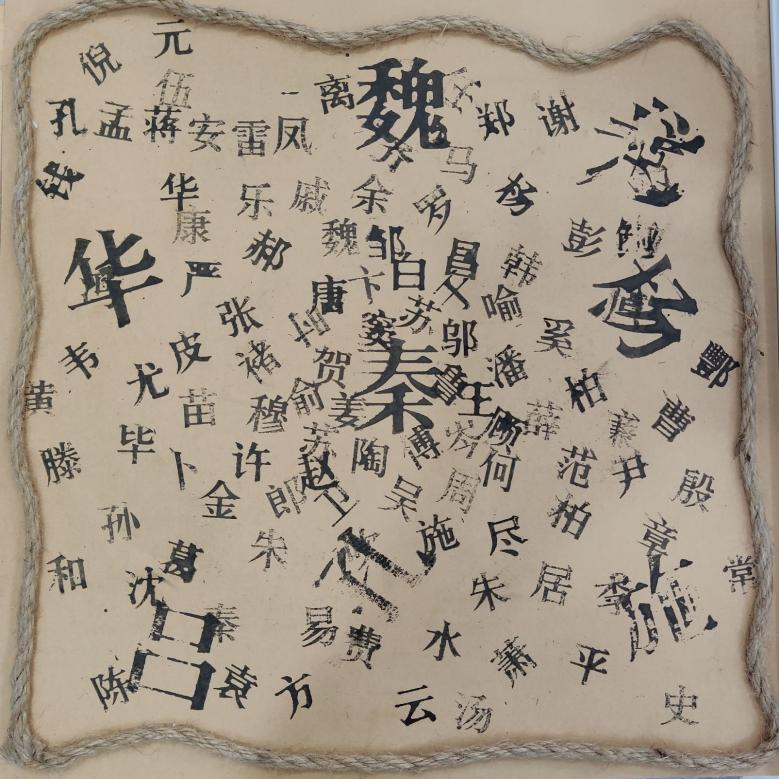 元
倪
伍
离
魏
孔
孟
蒋
安
雷
凤
郑
谢
马
钱
华
康
乐
戚
余
罗
彭
郝
魏
邹
白
昌
韩
华
严
唐
卞
喻
张
苏
窦
邬
韦
尤
皮
褚
贺
秦
潘
奚
柏
酆
黄
苗
穆
俞
姜
王
顾
薛
曹
滕
毕
卜
许
苏
赵
陶
傅
何
范
尹
殷
金
郎
卫
吴
周
柏
孙
朱
施
尽
章
和
沈
葛
朱
居
李
施
常
吕
秦
易
费
水
萧
平
陈
袁
方
云
汤
史